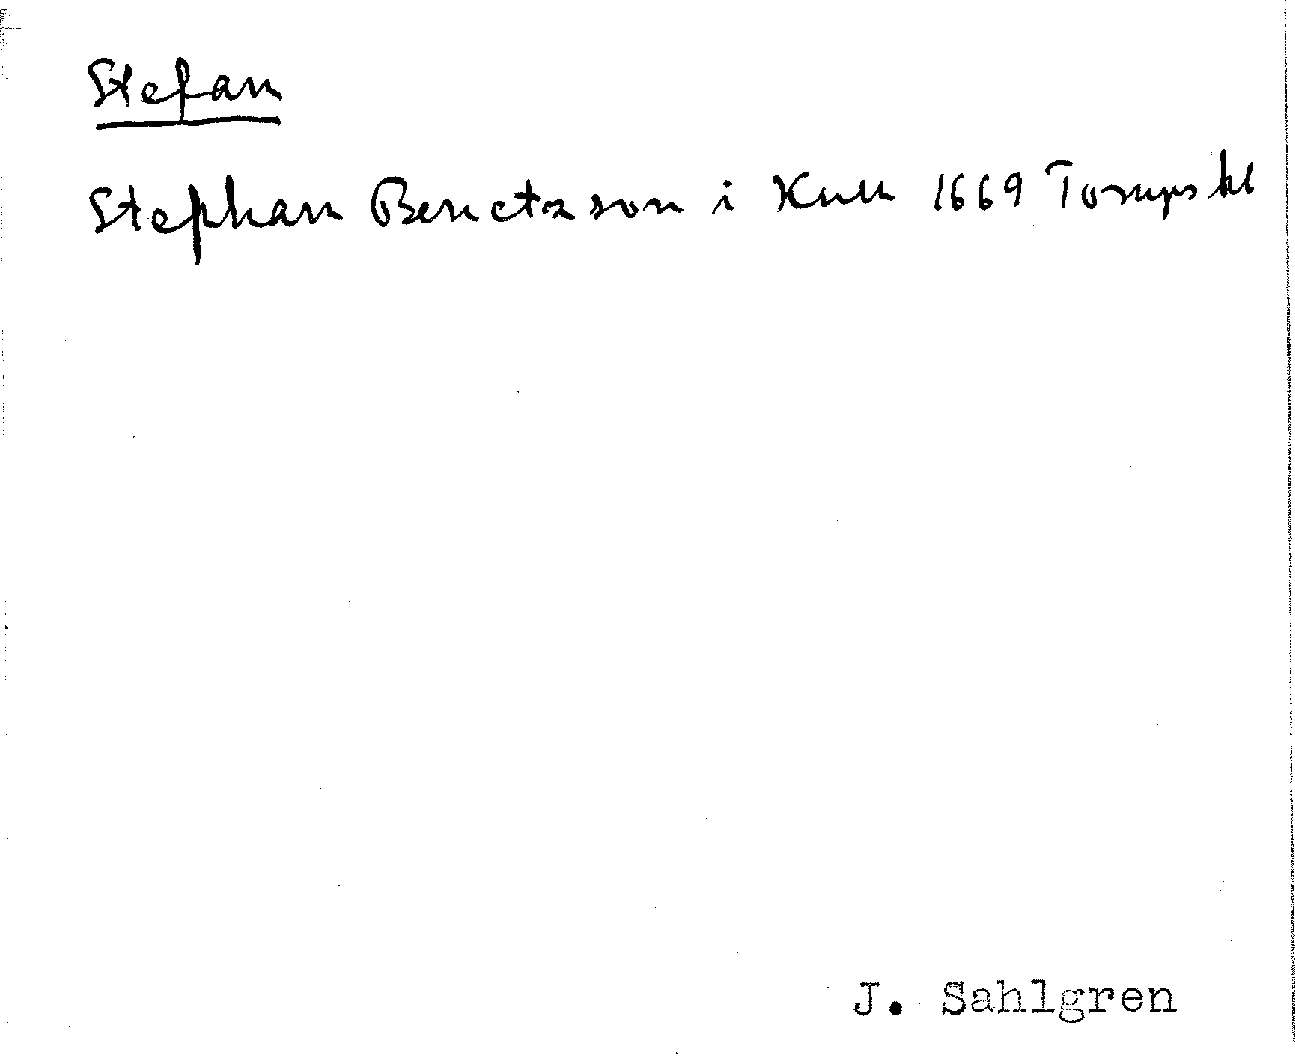 Stefan
Stephan Benctzson i Kull 1669 Torups kl
J. Sahlgren